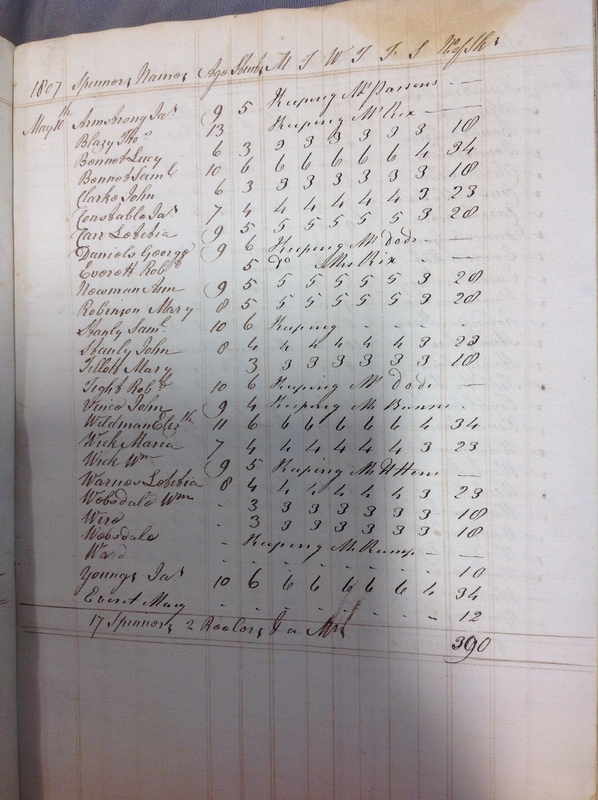 1807 Spinners Names Age Stents M T W T F S No of Sks
May 11th Armstrong Jas 9 5 Keeping Mr Parsons —
Blazy Thos 13 Keeping Mr Rix —
Bennet Lucy 6 3 3 3 3 3 3 3 18
Bennet Saml 10 6 6 6 6 6 6 4 34
Clarke John 6 3 3 3 3 3 3 3 18
Constable Jas 7 4 4 4 4 4 4 3 23
Carr Letitia 9 5 5 5 5 5 5 3 28
Daniels George 9 6 Keeping Mr dods —
Everett Robt 5 do Mr Rix - —
Newman Ann 9 5 5 5 5 5 5 3 28
Robinson Mary 8 5 5 5 5 5 5 3 28
Stanly Saml 10 6 Keeping - - - -
Stanly John 8 4 4 4 4 4 4 3 23
Tillott Mary 3 3 3 3 3 3 3 18
Tight Robt 10 6 Keeping Mr dods —
John 9 4 Keeping Mr
Wildman Elizth 11 6 6 6 6 6 6 4 34
Wick Maria 7 4 4 4 4 4 4 3 23
Wick Wm 9 5 Keeping Mr —
Warnes Letitia 8 4 4 4 4 4 4 3 23
Wobsdale Wm - 3 3 3 3 3 3 3 18
- 3 3 3 3 3 3 3 18
Wobsdale - Keeping Mr Rump - —
Ward - - - - - - - 10
Youngs Jas 10 6 6 6 6 6 6 4 34
Mary - - - - - - - 12
17 Spinners 2 Reelers
390